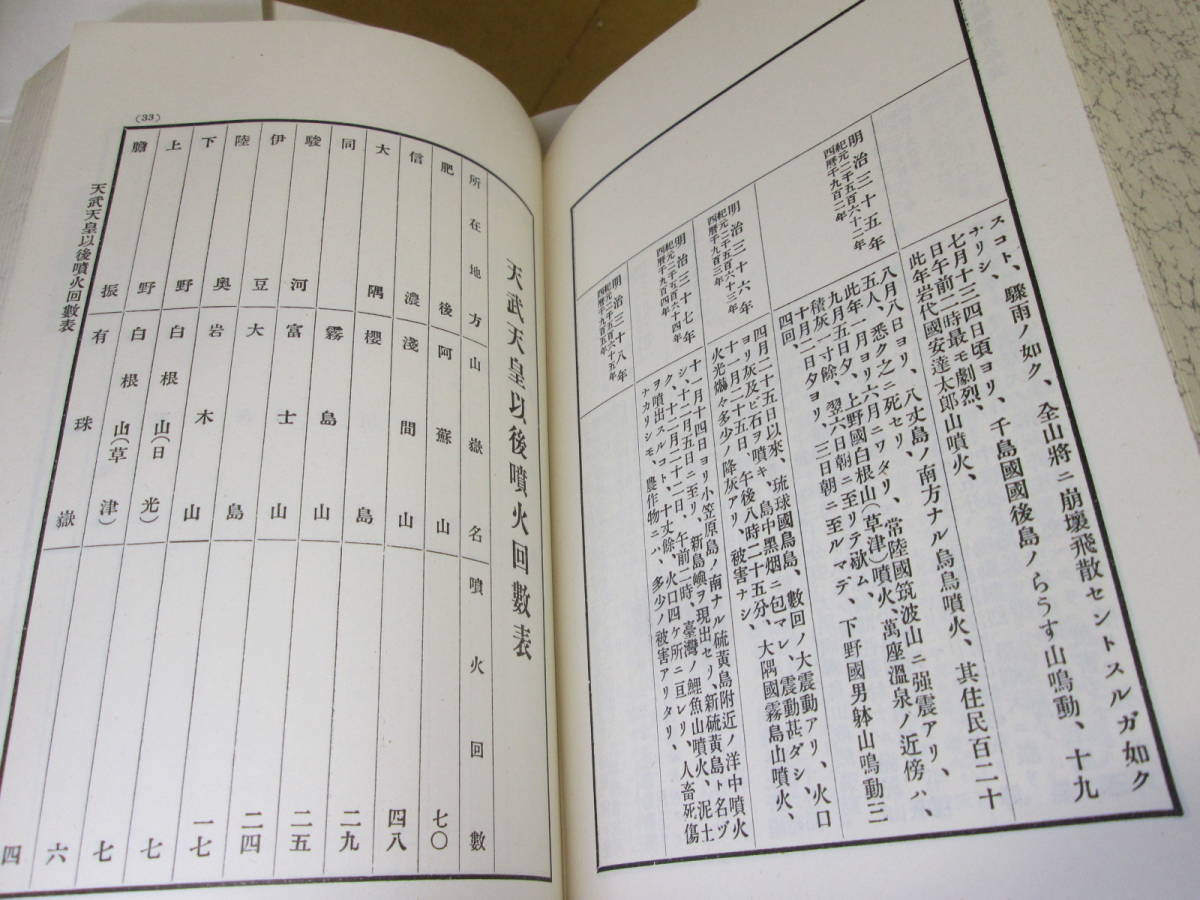 スコト、驟雨ノ如ク、全山將ニ崩壞飛散セントスルガ如ク
ナリシ、
七月十三四日頃ヨリ、千島國國後島ノらうす山鳴動、十九
日午前二時最モ劇烈、
此年岩代國安達太郎山噴火、
明治三十五年
紀元二千五百六十二年
西曆千九百二年
八月八日ヨリ、八丈島ノ南方ナル鳥島噴火、其住民百二十
五人、悉ク之ニ死セリ、
此年一月ヨリ六月ニワタリ、常陸國筑波山ニ强震アリ、
九月五日夕、上野國白根山(草津)噴火、萬座溫泉ノ近傍ハ、
積灰一寸餘、翌六日朝ニ至リテ歇ム、
十月二日夕ヨリ、三日朝ニ至ルマデ、下野國男躰山鳴動三
四回、
明治三十六年
紀元二千五百六十三年
西曆千九百三年
四月二十五日以來、琉球國鳥島、數回ノ大震動アリ、火口
ヨリ灰及ビ石ヲ噴キ、島中黑烟ニ包マレ、震動甚ダシ、
十一月二十五日、午後八時二十五分、大隅國霧島山噴火、
火光爛々多少ノ降灰アリ、被害ナシ、
明治三十七年
紀元二千五百六十四年
西曆千九百四年
十一月十四日ヨリ小笠原島ノ南ナル硫黃島附近ノ洋中噴火
シ、十二月五日ニ至リ、新島嶼ヲ現出セリ、新硫黃島ト名ヅ
ク、十二月二十二日、午前二時、臺灣ノ鯉魚山噴火、泥土
ヲ噴出スルコト、十丈餘、火口四ケ所ニ亘レリ、人畜死傷
ナカリシモ、農作物ニハ、多少ノ被害アリタリ、
明治三十八年
紀元二千五百六十五年
西曆千九百五年
天武天皇以後噴火回數表
所在地方 山嶽名 噴火回數
肥後 阿蘇山 七〇
信濃 淺間山 四八
大隅 櫻島 二九
同 霧島山 二五
駿河 富士山 二四
伊豆 大島 一七
陸奧 岩木山 七
下野 白根山(日光) 七
上野 白根山(草津) 六
膽振 有珠嶽 四
(33)
天武天皇以後噴火回數表